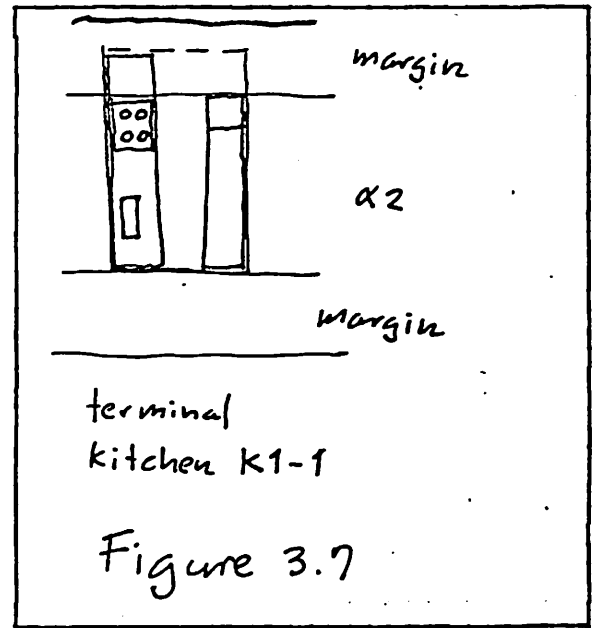 margin
α2
margin
terminal
kitchen K1-1
Figure 3.7